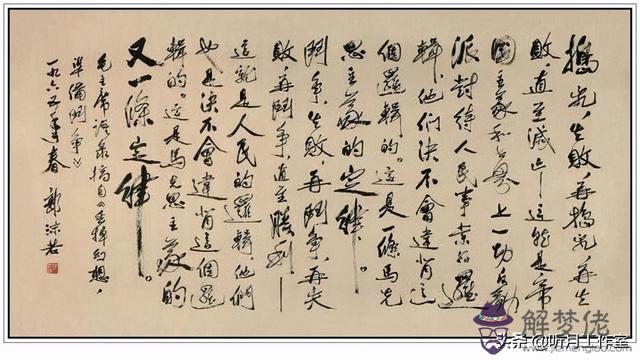 搗乱,失敗,再搗乱,再失
敗,直至滅亡——這就是帝
國主義和世界上一切反動
派對待人民事業的邏
輯,他們決不會違背這
個邏輯的。這是一條馬克
思主義的定律。
鬥爭,失敗,再鬥爭,再失
敗,再鬥爭,直至勝利——
這就是人民的邏輯,他們
也是決不會違背這個邏
輯的。這是馬克思主義的
又一條定律。
毛主席語录摘自《丟掉幻想,
準備鬥爭》
一九六五年春 郭沫若
解梦佬
头条 @听月工作室